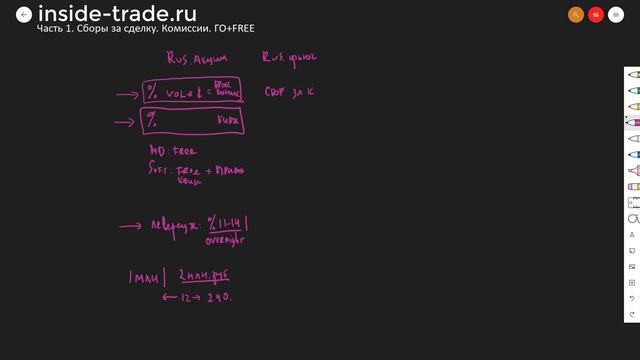 inside-trade.ru
Часть 1. Сборы за сделку. Комиссии. ГО+FREE
RUS. Акции RUS. фьюч
% VOL * = БРОК КОМИС СБОР ЗА 1К
% БИРЖ
MD: FREE
SOFT: FREE +
левередж: % 11-14
overnight
1 млн 2 млн. руб
← 12 → 240.